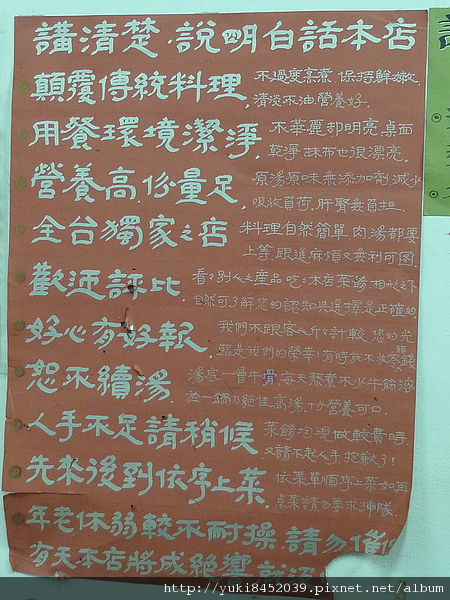 講清楚.說明白話本店
顛覆傳統料理,
不過度烹煮 保持鮮嫩
清淡不油 營養好.
用餐環境潔淨,
不華麗却明亮 桌面
乾淨 抹布也很漂亮.
營養高.份量足,
原湯原味無添加劑 減少
吸收負荷 肝腎無負担.
全台獨家之店
料理自然簡單 肉 湯都要
上等 跟進麻煩又無利可图.
歡迎評比
看看別人之產品 吃吃本店菜餚 相形之下
自然可了解 您的認知與選擇是正確的
好心有好報
我們不跟客人斤斤計較 您的光
臨是我們的榮幸!有時就不收 錢
恕不續湯.
湯底一層牛骨 每天熬煮不少牛筋溶
於一鍋 乃絕佳高湯 十分營養可口.
人手不足請稍候
菜餚均現做較費時
又請不起人手 抱歉了!
先來後到依序上菜
依菜單順序上菜 如再
点菜請勿要求插隊
年老体弱較不耐操 請勿催
有天本店將成絕響
http://yuki8452039.pixnet.net/album